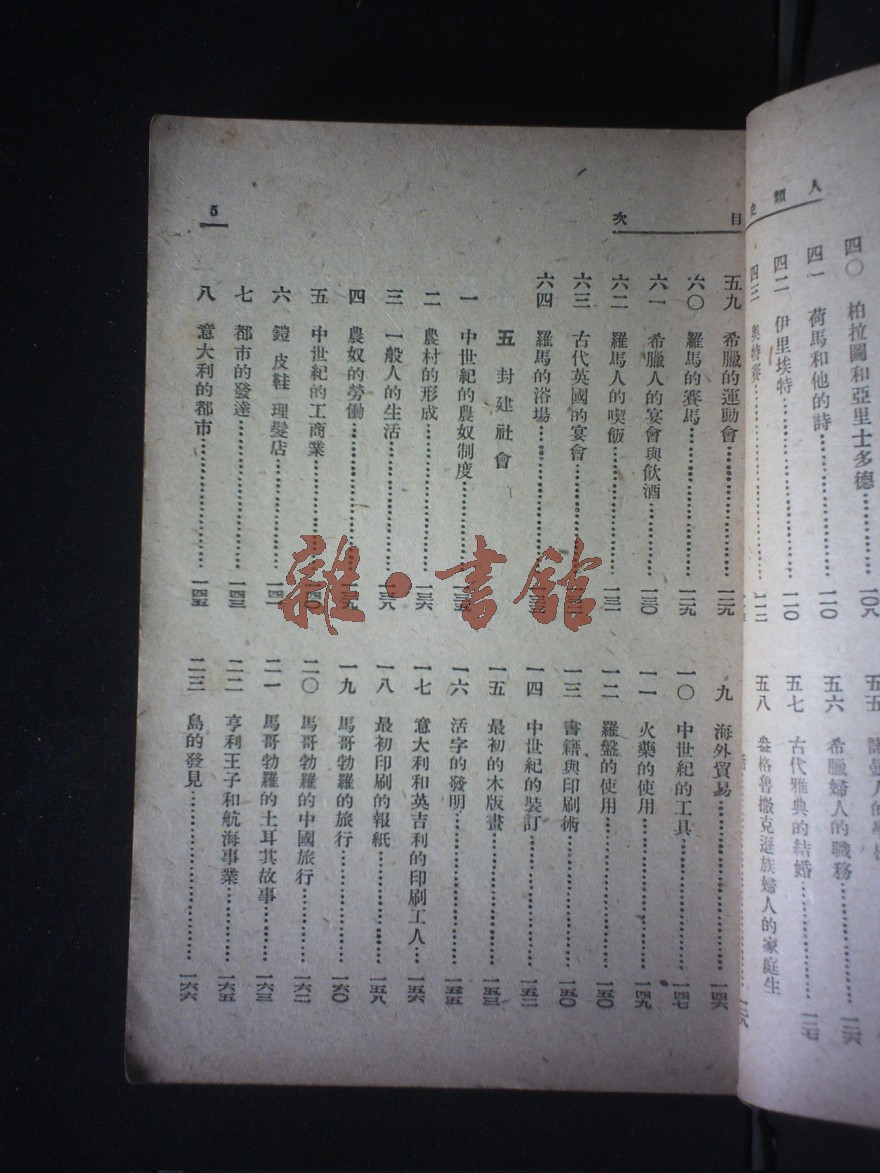 人類史
四〇 柏拉圖和亞里士多德 一〇八
四一 荷馬和他的詩……………… 一一〇
四二 伊里埃特……………… 一一〇
四三 奧特賽……………… 一一二
五六 希臘婦人的職務……………… 一二六
五七 古代雅典的結婚……………… 一二七
五八 盎格魯撒克遜族婦人的家庭生
活……………… 一二八
目次
五九 希臘的運動會……………… 一二九
六〇 羅馬的賽馬……………… 一二九
六一 希臘人的宴會與飲酒……………… 一三〇
六二 羅馬人的喫飯……………… 一三一
六三 古代英國的宴會………………
六四 羅馬的浴場………………
五 封建社會
一 中世紀的農奴制度……………… 一三五
二 農村的形成……………… 一三六
三 一般人的生活……………… 一三八
四 農奴的勞働……………… 一三九
五 中世紀的工商業……………… 一四〇
六 鎧 皮鞋 理髮店……………… 一四一
七 都市的發達……………… 一四三
八 意大利的都市……………… 一四五
九 海外貿易……………… 一四六
一〇 中世紀的工具……………… 一四七
一一 火藥的使用……………… 一四九
一二 羅盤的使用……………… 一五〇
一三 書籍與印刷術……………… 一五〇
一四 中世紀的裝訂……………… 一五二
一五 最初的木版畫……………… 一五三
一六 活字的發明……………… 一五五
一七 意大利和英吉利的印刷工人…… 一五六
一八 最初印刷的報紙……………… 一五八
一九 馬哥勃羅的旅行……………… 一六〇
二〇 馬哥勃羅的中國旅行……………… 一六二
二一 馬哥勃羅的土耳其故事……………… 一六三
二二 亨利王子和航海事業……………… 一六五
二三 島的發見……………… 一六六
5
雜·書館